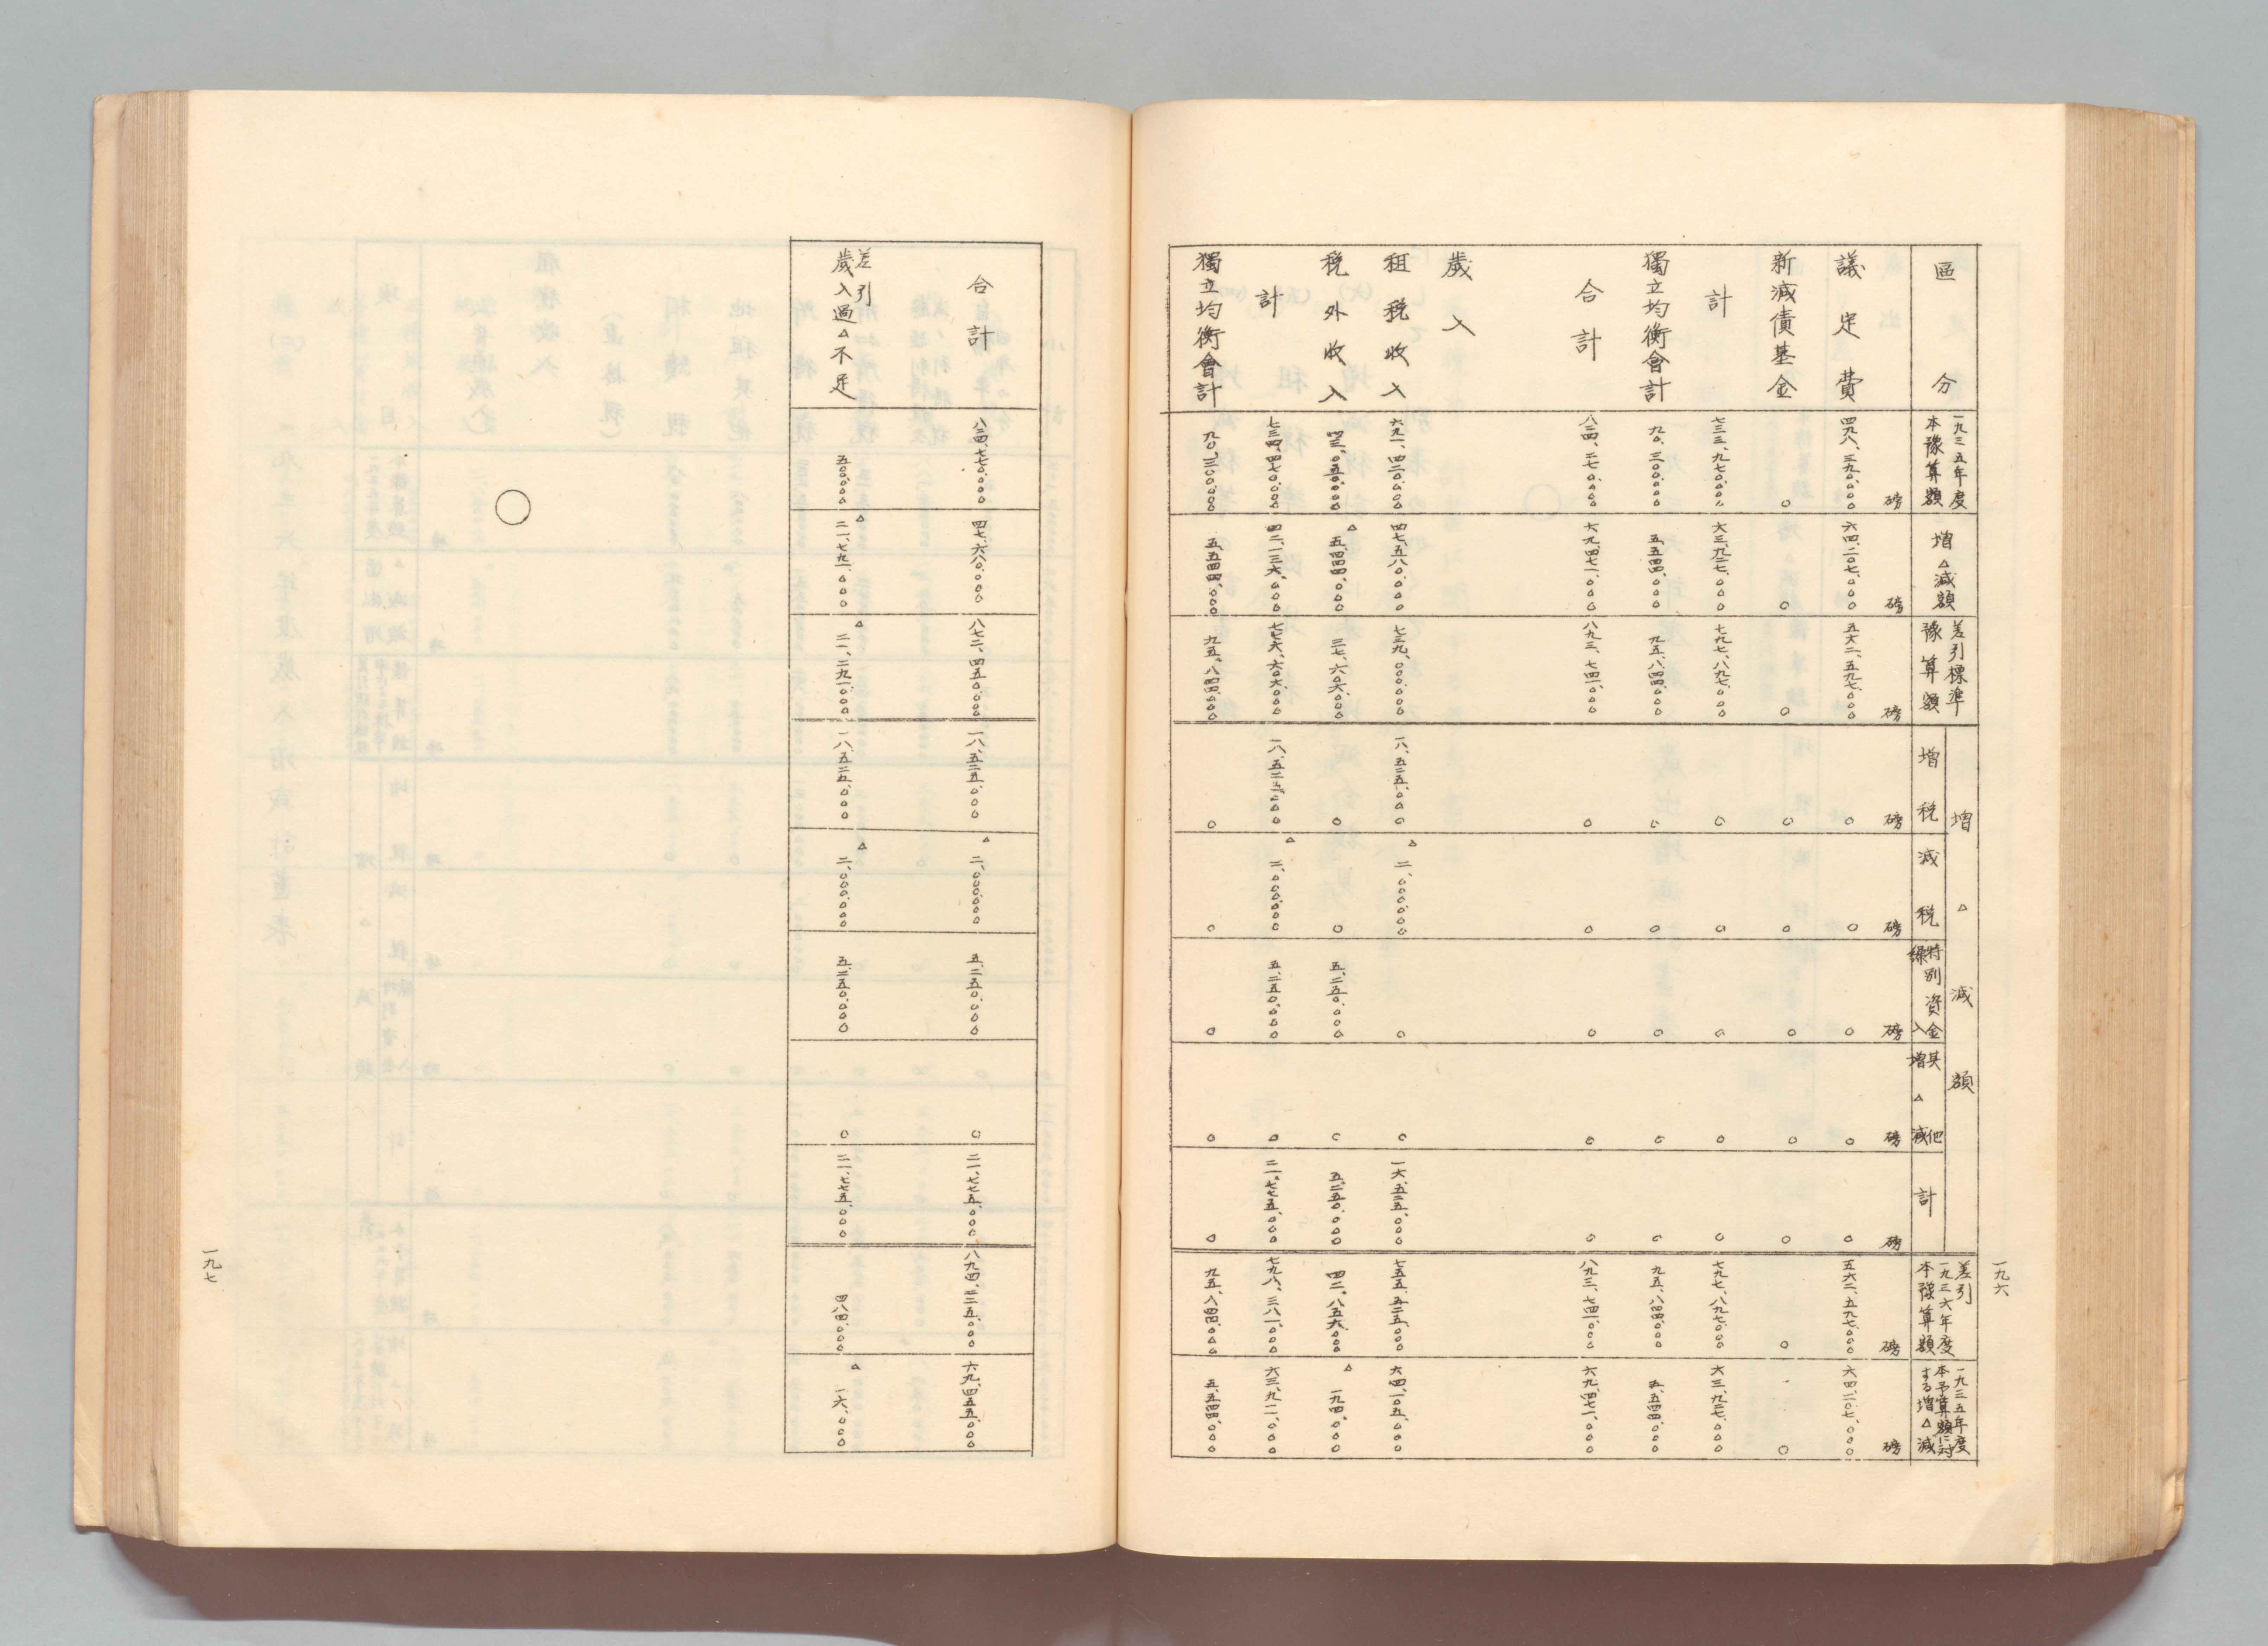 一九六
區分
一九三五年度本豫算額
増△減額
差引標準豫算額
増△減額
増税
減税
特別資金繰入
其他増△減
計
差引一九三六年度本豫算額
一九三五年度本予算額に対する増△減
磅 磅 磅 磅 磅 磅 磅 磅 磅 磅
議定費 四九八、三九〇、〇〇〇 六四、二〇七、〇〇〇 五六二、五九七、〇〇〇 〇 〇 〇 〇 〇 五六二、五九七、〇〇〇 六四、二〇七、〇〇〇
新減債基金 〇 〇 〇 〇 〇 〇 〇 〇 〇 〇
計 七三三、九七〇、〇〇〇 六三、九二七、〇〇〇 七九七、八九七、〇〇〇 〇 〇 〇 〇 〇 七九七、八九七、〇〇〇 六三、九二七、〇〇〇
獨立均衡會計 九〇、三〇〇、〇〇〇 五、五四四、〇〇〇 九五、八四四、〇〇〇 〇 〇 〇 〇 〇 九五、八四四、〇〇〇 五、五四四、〇〇〇
合計 八二四、二七〇、〇〇〇 六九、四七一、〇〇〇 八九三、七四一、〇〇〇 〇 〇 〇 〇 〇 八九三、七四一、〇〇〇 六九、四七一、〇〇〇
歳入
租税收入 六九一、四二〇、〇〇〇 四七、五八〇、〇〇〇 七三九、〇〇〇、〇〇〇 一八、五二五、〇〇〇 △二、〇〇〇、〇〇〇 〇 〇 一六、五二五、〇〇〇 七五五、五二五、〇〇〇 六四、一〇五、〇〇〇
税外收入 四三、〇五〇、〇〇〇 △五、四四四、〇〇〇 三七、六〇六、〇〇〇 〇 〇 五、二五〇、〇〇〇 〇 五、二五〇、〇〇〇 四二、八五六、〇〇〇 △一九四、〇〇〇
計 七三四、四七〇、〇〇〇 四二、一三六、〇〇〇 七七六、六〇六、〇〇〇 一八、五二五、〇〇〇 △二、〇〇〇、〇〇〇 五、二五〇、〇〇〇 〇 二一、七七五、〇〇〇 七九八、三八一、〇〇〇 六三、九一一、〇〇〇
獨立均衡會計 九〇、三〇〇、〇〇〇 五、五四四、〇〇〇 九五、八四四、〇〇〇 〇 〇 〇 〇 〇 九五、八四四、〇〇〇 五、五四四、〇〇〇
合計 八二四、七七〇、〇〇〇 四七、六八〇、〇〇〇 八七二、四五〇、〇〇〇 一八、五二五、〇〇〇 △二、〇〇〇、〇〇〇 五、二五〇、〇〇〇 〇 二一、七七五、〇〇〇 八九四、二二五、〇〇〇 六九、四五五、〇〇〇
差引歳入過△不足 五〇〇、〇〇〇 △二一、七九一、〇〇〇 △二一、二九一、〇〇〇 一八、五二五、〇〇〇 △二、〇〇〇、〇〇〇 五、二五〇、〇〇〇 〇 二一、七七五、〇〇〇 四八四、〇〇〇 △一六、〇〇〇
〇
一九七